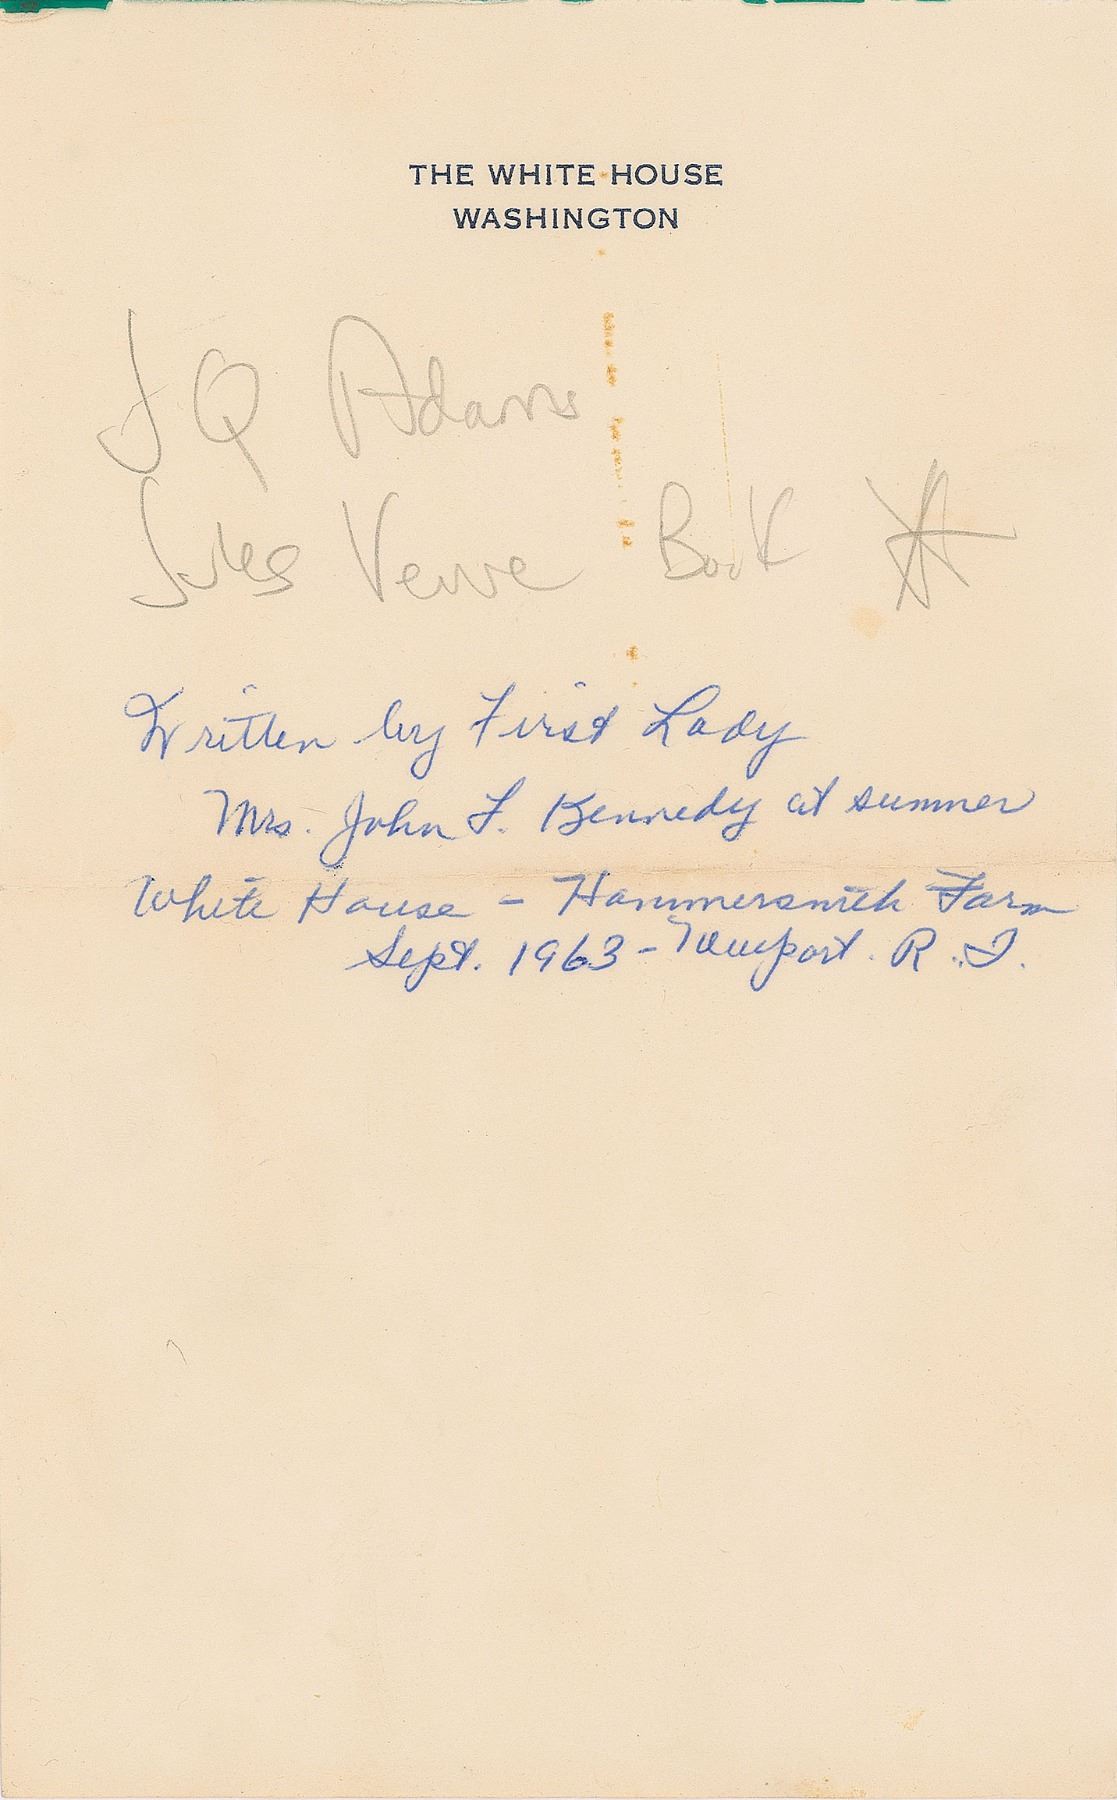 THE WHITE HOUSE
WASHINGTON
J Q Adams
Jules Verne Book
Written by First Lady
Mrs. John F. Kennedy at summer
White House - Hammersmith Farm
Sept. 1963 - Newport. R.I.